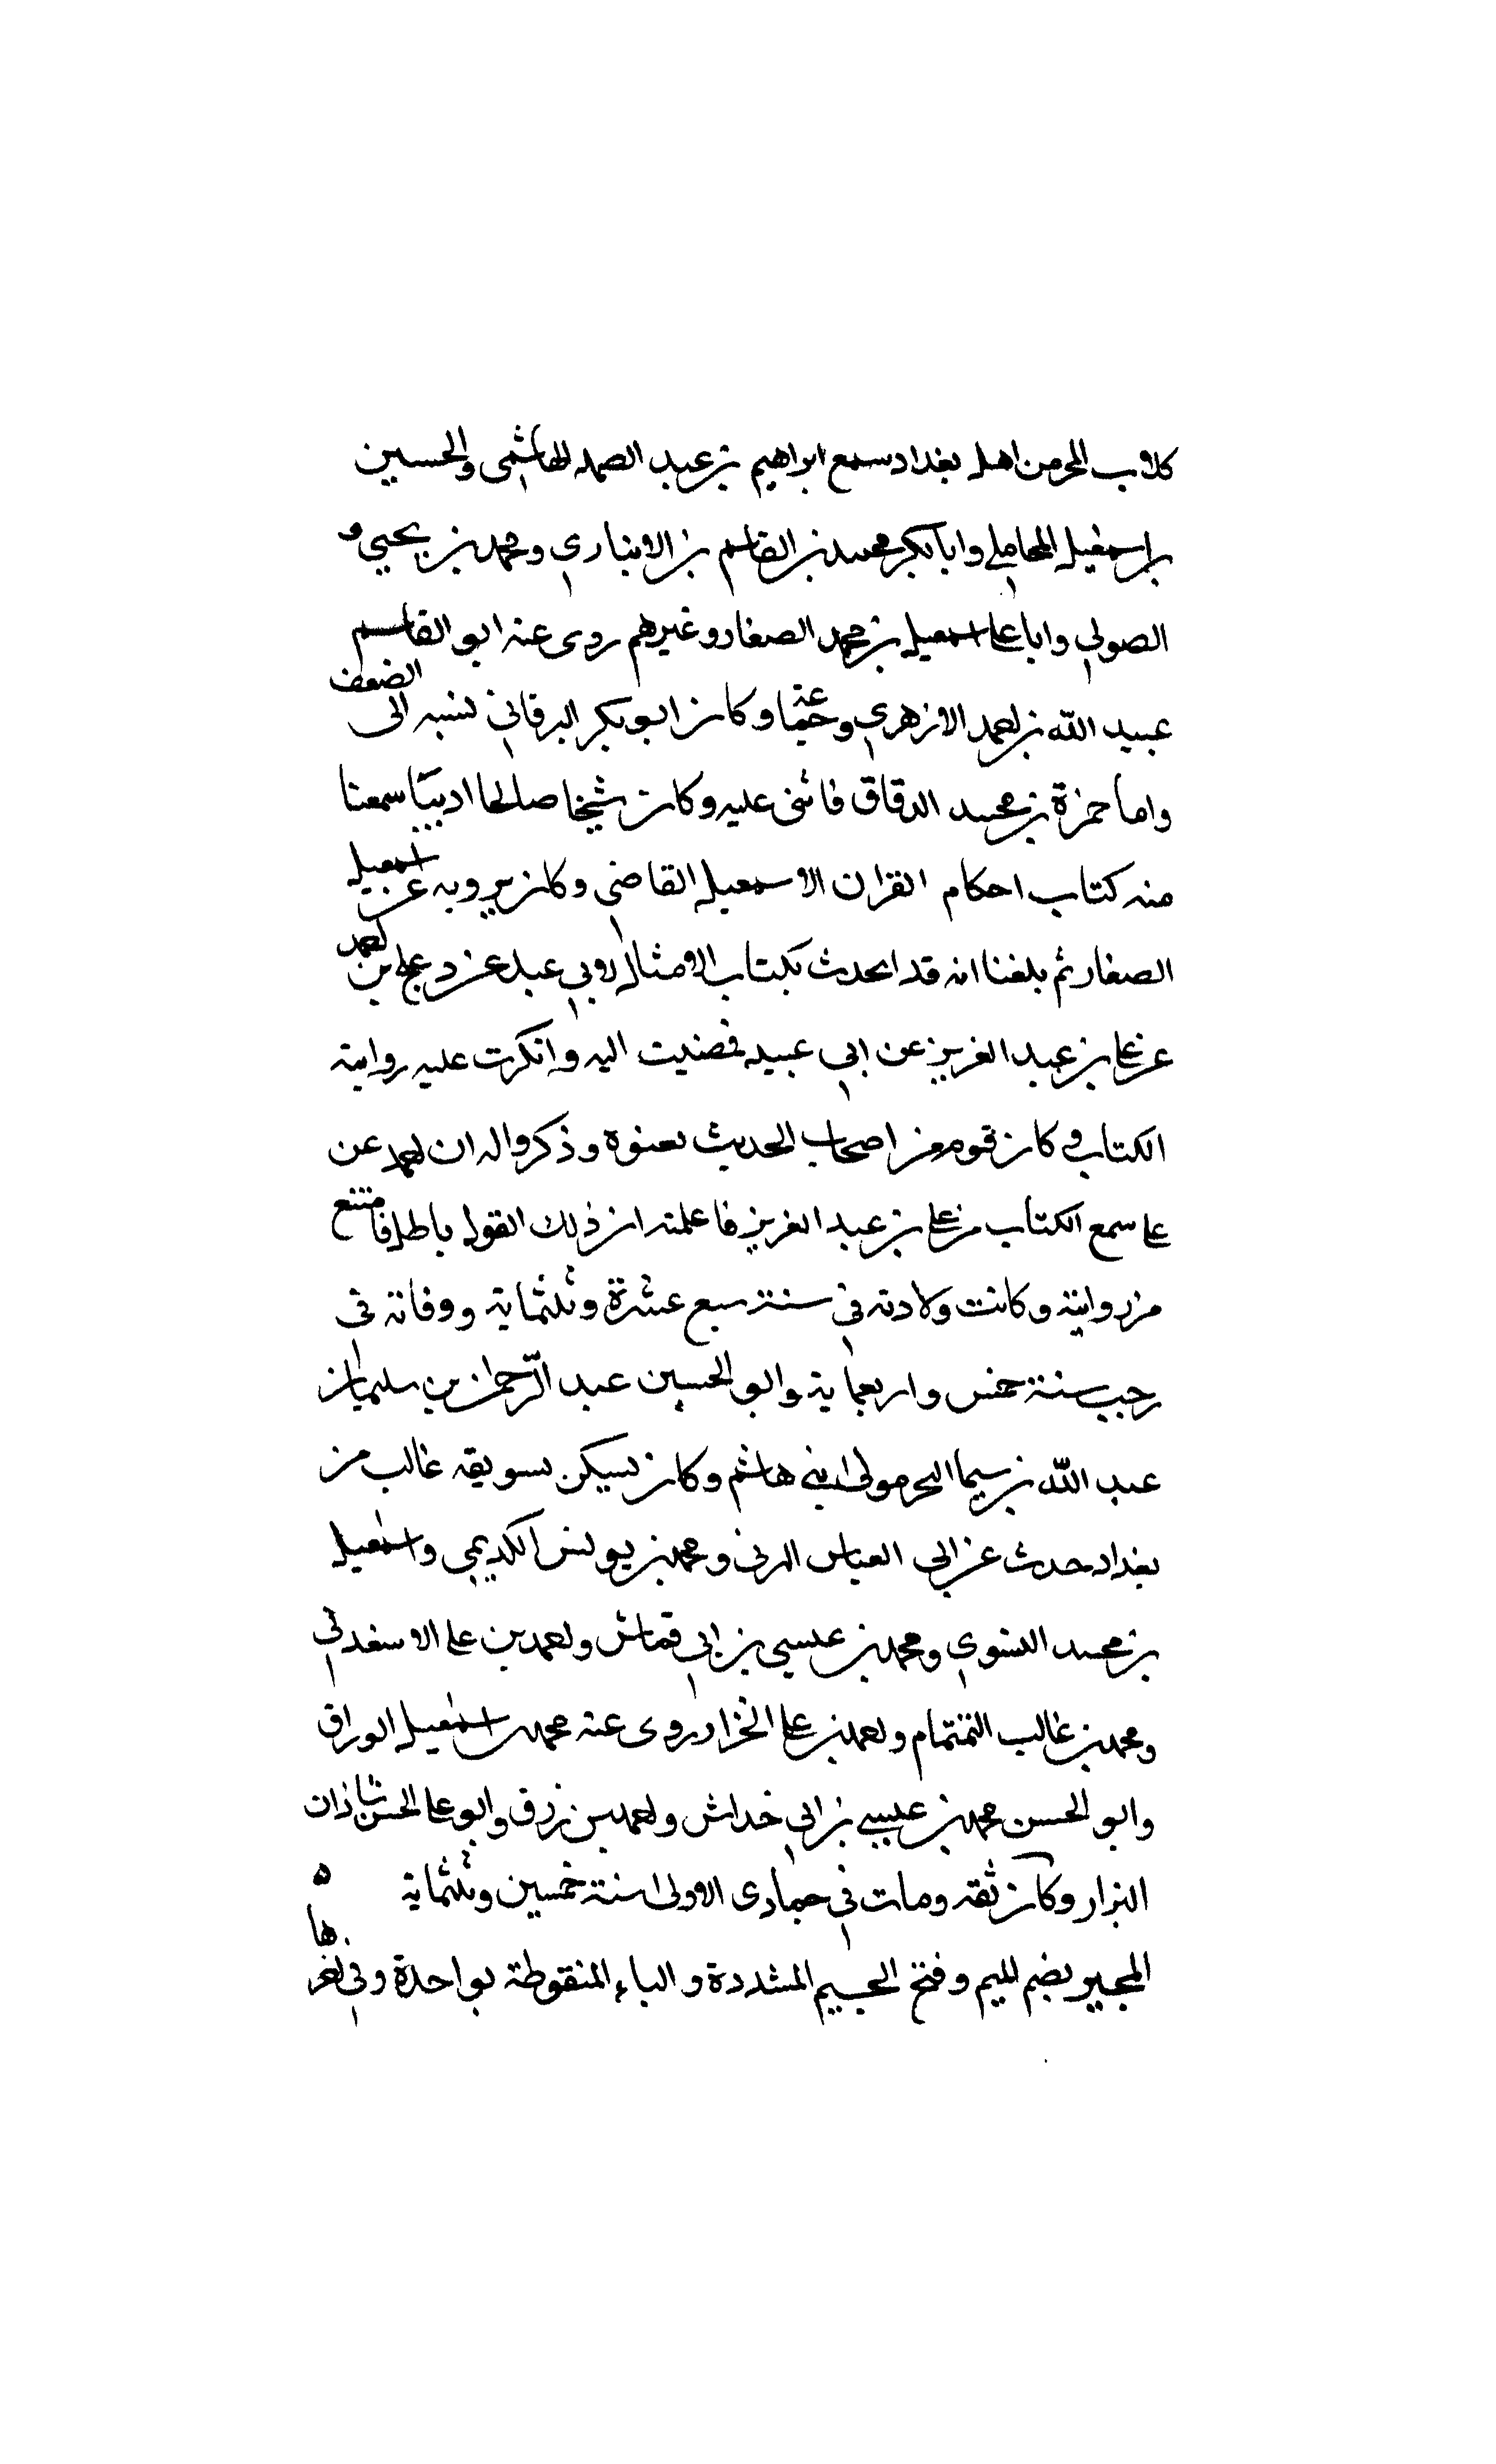 كلاب المحر من اهل بغداد سمع ابراهيم بن عبد الصمد الهاشمى والحسين
بن اسمعيل المحاملي وابا بكر محمد بن القاسم بن الانباري ومحمد بن يحيي
الصولي وابا على اسمعيل بن محمد الصفار وغيرهم روى عنه ابو القاسم
عبيد الله بن احمد الازهري وكان ابو بكر البرقاني ينسبه الى الضعف
واما حمزة بن محمد الدقاق فاثنى عليه وكان شيخا صالحا اديبا سمعنا
منه كتاب احكام القران لاسمعيل القاضى وكان يرويه عن اسمعيل
الصفار ثم بلغنا انه قد ابحدث بكتاب الامثال لابي عبيد عن دعلج بن احمد
عن على بن عبد العزيز عن ابي عبيد فمضيت اليه وانكرت عليه روايته
الكتاب وكان قوم من اصحاب الحديث وذكروا له ان احمد عن
على سمع الكتاب من على بن عبد العزيز فاعلمته ان ذلك القول باطل فامتنع
من روايته وكانت ولادته في سنة سبع عشرة وثلثماية ووفاته في
رجب سنة خمس واربعماية وابو الحسين عبد الرحمان بن سليمان
عبد الله بن سيما المحر مولى ابنى هاشم وكان يسكن بسويقه غالب من
بغداد حدث عن ابى العباس البرنى ومحمد بن يونس الكديمي واسمعيل
بن محمد الفسوي ومحمد بن عيسي بن ابي قماش واحمد بن على الاسفدني
ومحمد بن غالب التمتمام واحمد بن على الخزاز روى عنه محمد بن اسمعيل الوراق
وابو الحسن محمد بن عيسي بن ابي خداش واحمد بن زرق وابو على الحسن شاذان
البزار وكان ثقه ومات في جمادى الاولى سنة خمسين وثلثماية ه
المجبر بضم الميم وفتح الجيم المشددة والباء المنقوطة بواحدة وفي اخرها